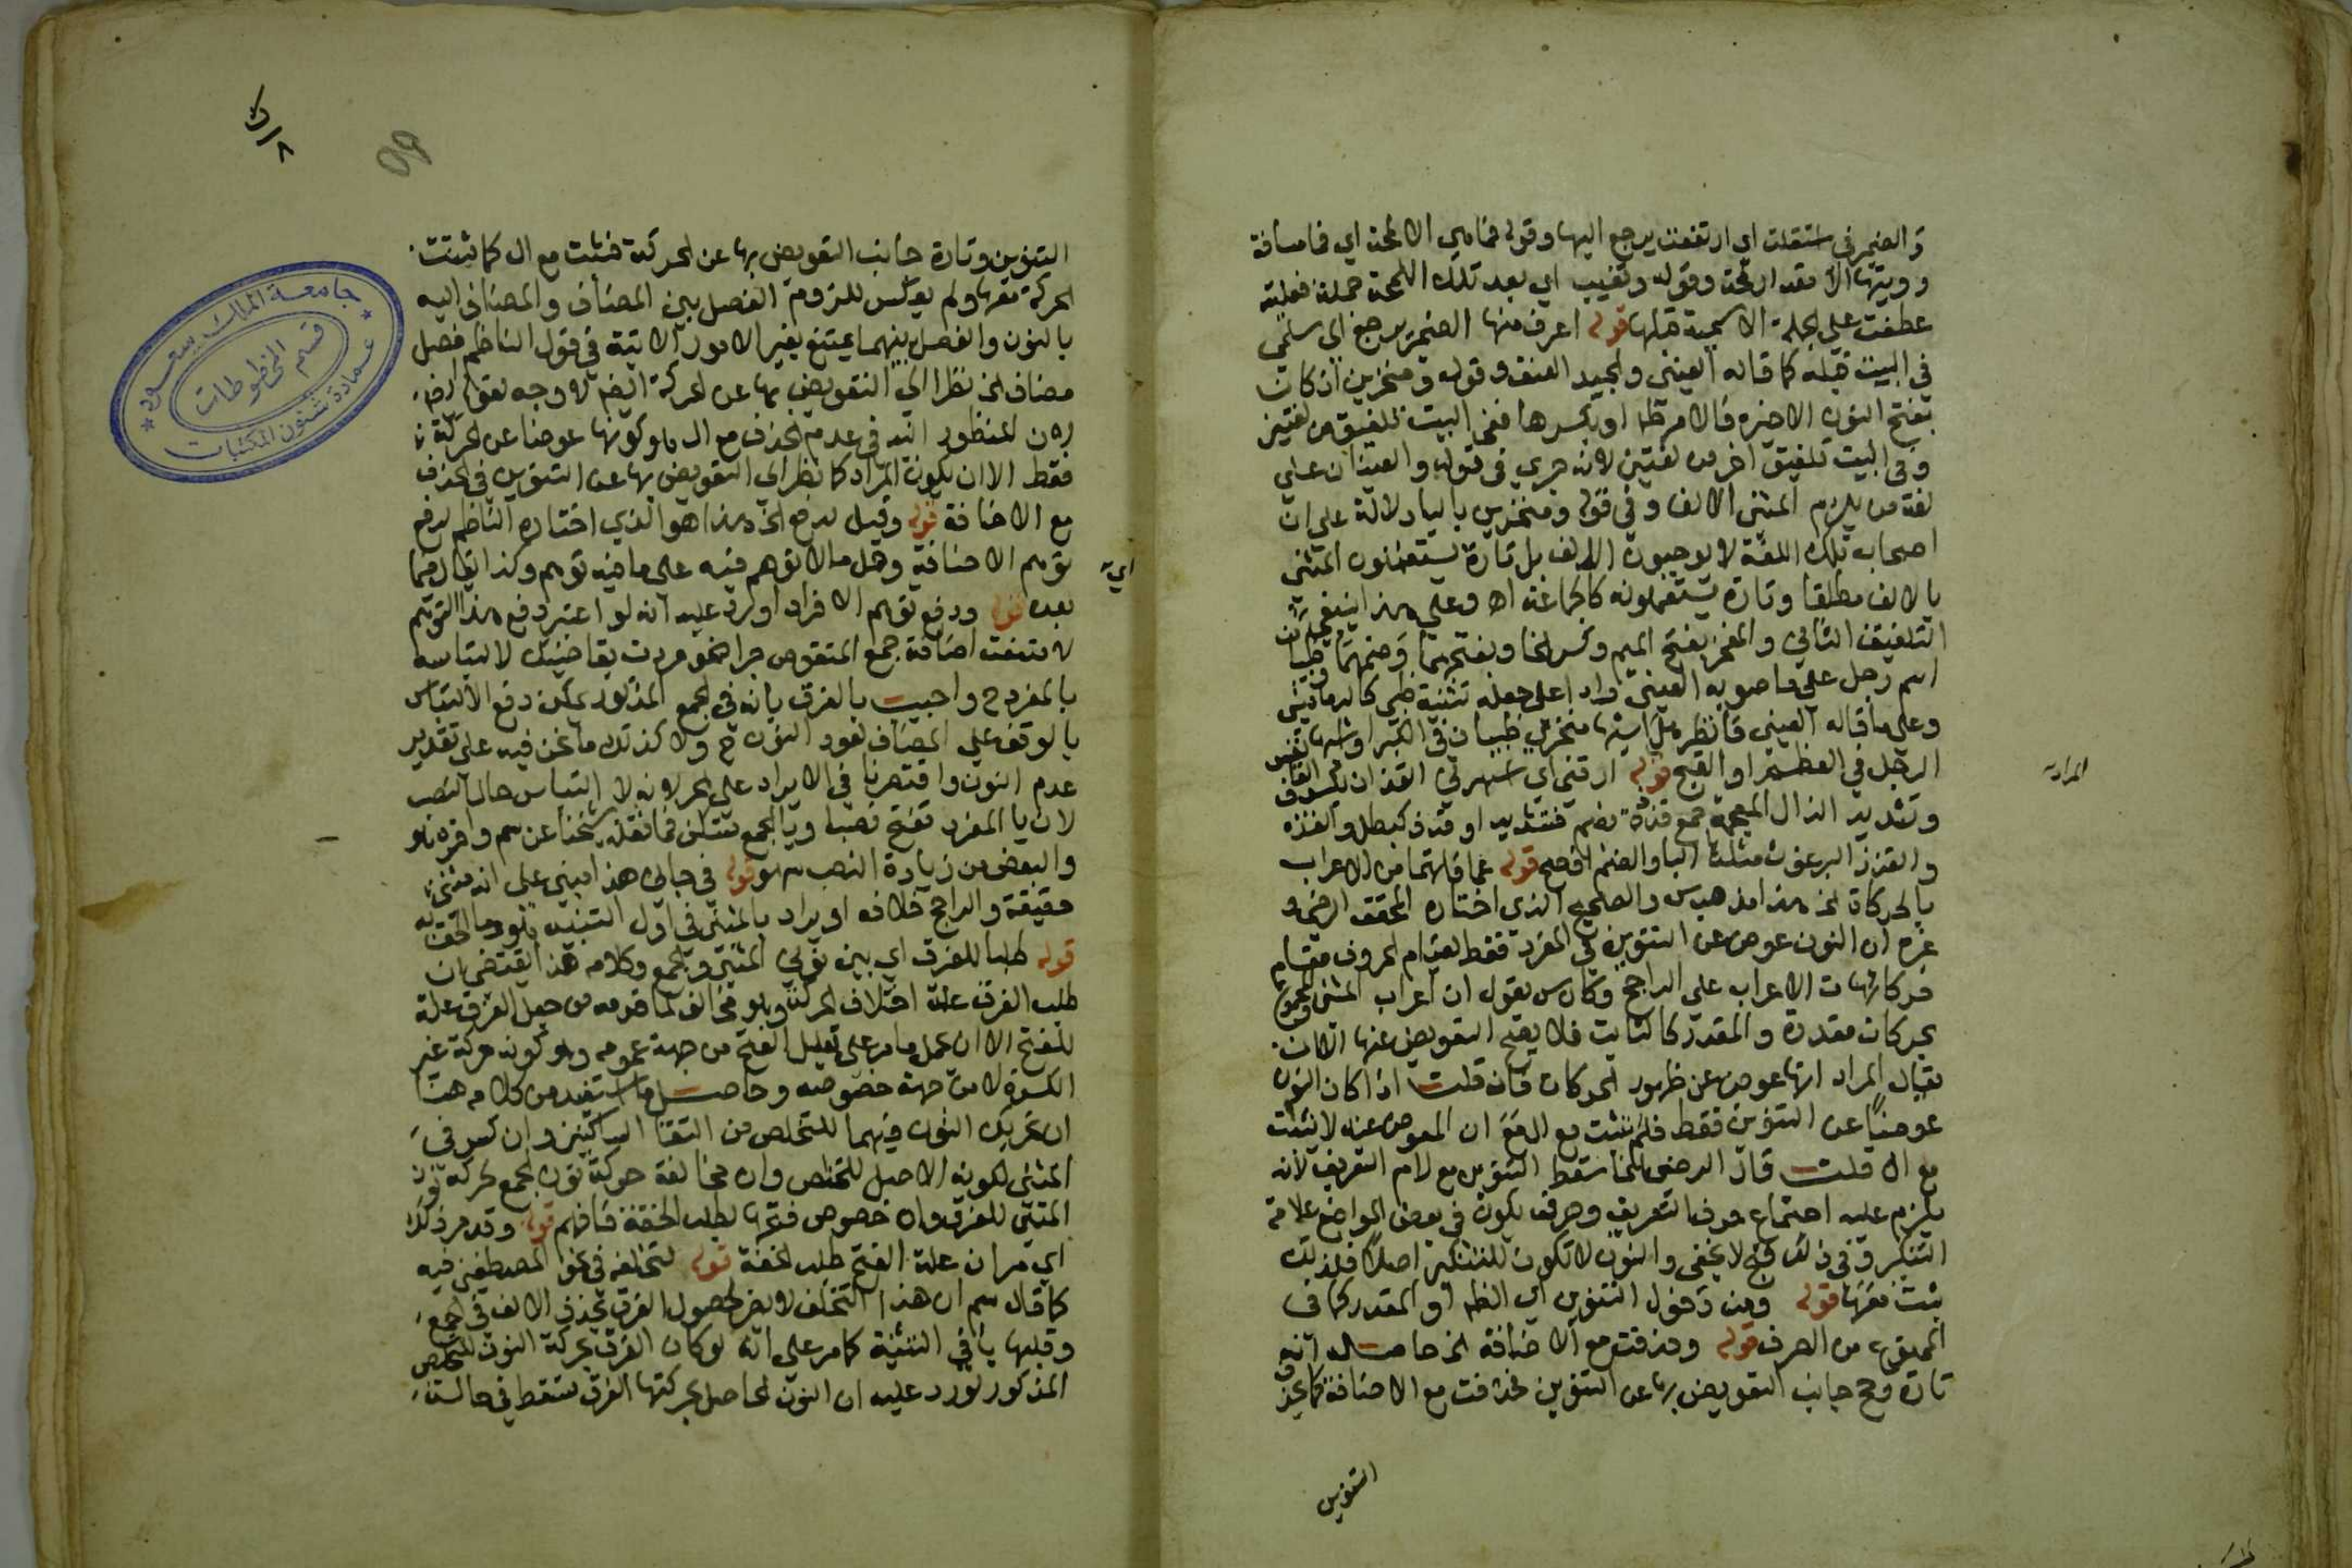 والضمير في استقلت اي ارتفعت يرجع اليها وقوله فما هي الا لمحة اي فما مسافة
ورؤيتها الا مقدار لمحة وقوله وتغيب اي بعد تلك اللمحة جملة فعلية
عطفت على الجملة الاسمية قبلها قوله اعرف منها الضمير يرجع الى سلمى
في البيت قبله كما قاله العيني والجيد العنق وقوله ومنخرين ان كان
بفتح النون الاخيرة فالامر ظاهر او بكسرها ففي البيت تلفيق من لغتين
وفي البيت تلفيق اخر من لغتين لانه جرى في قوله والعينان على
لغة من يلزم المثنى الالف وفي قوله ومنخرين بالياء دلالة على ان
اصحاب تلك اللغة لا يوجبون الالف بل تارة يستعملون المثنى
بالالف مطلقا وتارة يستعملونه كالجماعة اه وعلى هذا ينتفي
التلفيق الثاني والمنخر بفتح الميم وكسر الخا وبفتحهما وضمهما وظبيان
اسم رجل على ما صوبه العيني رادا على جعله تثنية ظبي كالدماميني
وعلى ما قاله العيني فانظر هل اشبها منخري ظبيان في الكبر او اشبها نفس
الرجل في العظم او القبح قوله ارقني اي اسهرني القذان بكسر القاف
وتشديد الذال المعجمة جمع قذة بضم فتشديد او قذذ كبطل والقذة
والقذذ البرغوث مثلث البا والضم افصح قوله عما فاتهما من الاعراب
بالحركات الخ هذا مذهب س والصحيح الذي اختاره المحقق الرضي و
غيره ان النون عوض عن التنوين في المفرد فقط لقيام الحروف مقام
حركات الاعراب على الراجح وكان س يقول ان اعراب المثنى والجمع
بحركات مقدرة والمقدر كالثابت فلا يصح التعويض عنها الا ان
يقال المراد انها عوض عن ظهور الحركات فان قلت اذا كان النون
عوضا عن التنوين فقط فلم تثبت مع ال مع ان المعوض عنه لا يثبت
مع ال قلت قال الرضي انما سقط التنوين مع لام التعريف لانه
يلزم عليه اجتماع حرف التعريف وحرف يكون في بعض المواضع علامة
التنكير وفي ذلك قبح لا يخفى والنون لا تكون للتنكير اصلا فلذلك
ثبتت معها قوله ومن دخول التنوين اي الظاهر او المقدر كما في
الممنوع من الصرف قوله وحذفت مع الاضافة الخ حاصله انه
تارة رجح جانب التعويض بها عن التنوين فحذفت مع الاضافة كما يحذف
التنوين
المراد
التنوين وتارة جانب التعويض بها عن الحركة فثبتت مع ال كما ثبتت
الحركة معها ولم يعكس للزوم الفصل بين المضاف والمضاف اليه
بالنون والفصل بينهما يمتنع بغير الامور الاتية في قول الناظم فصل
مضاف الخ نظرا الى التعويض بها عن الحركة ايضا لا وجه لقوله ايضا
لان المنظور اليه في عدم الحذف مع ال هو كونها عوضا عن الحركة
فقط الا ان يكون المراد كما نظر الى التعويض بها عن التنوين في الحذف
مع الاضافة قوله وقيل لدفع الخ هذا هو الذي اختاره الناظم لدفع
توهم الاضافة وحمل ما لا توهم فيه على ما فيه توهم وكذا يقال فيما
اي
بعده قوله ودفع توهم الافراد اورد عليه انه لو اعتبر دفع هذا التوهم
لامتنعت اضافة جمع المنقوص جرا نحو مررت بقاضيك لالتباسه
بالمفرد ح واجيب بالفرق بانه في الجمع المذكور يمكن دفع الالتباس
بالوقف على المضاف لعود النون ح ولا كذلك ما نحن فيه على تقدير
عدم النون واقتصرنا في الايراد على الجر لانه لا التباس حال النصب
لان يا المفرد تفتح نصبا ويا الجمع تسكن فما نقله شيخنا عن سم واقره هو
والبعض من زيادة النصب سهو قوله في خباي هذا مبني على انه مثنى
حقيقة والراجح خلافه او يراد بالمثنى في اول التنبيه هو وما الحق به
قوله طلبا للفرق اي بين نوني المثنى والجمع وكلامه هذا يقتضي ان
طلب الفرق علة اختلاف الحركة وهو مخالف لما قدمه من جعل الفرق علة
للفتح الا ان يحمل ما مر على تعليل الفتح من جهة عمومه وهو كونه حركة غير
الكسرة لا من جهة خصوصه وحاصل ما استفيد من كلامه هنا
ان تحريك النون فيهما للتخلص من التقا الساكنين وان كسر في
المثنى لكونه الاصل للتخلص وان مخالفة حركة نون الجمع لحركة نون
المثنى للفرق وان خصوص فتحها لطلب الخفة فافهم قوله وقد مر ذلك
اي مر ان علة الفتح طلب الخفة قوله لتخلفه في نحو المصطفين فيه
كما قال سم ان هذا التخلف لا يضر لحصول الفرق بحذف الالف في الجمع
وقلبها يا في التثنية كما مر على انه لو كان الفرق بحركة النون للتخلص
المذكور لورد عليه ان النون الحاصل بحركتها الفرق تسقط في حالة
جامعة الملك سعود
قسم المخطوطات
عمادة شئون المكتبات
٥٩